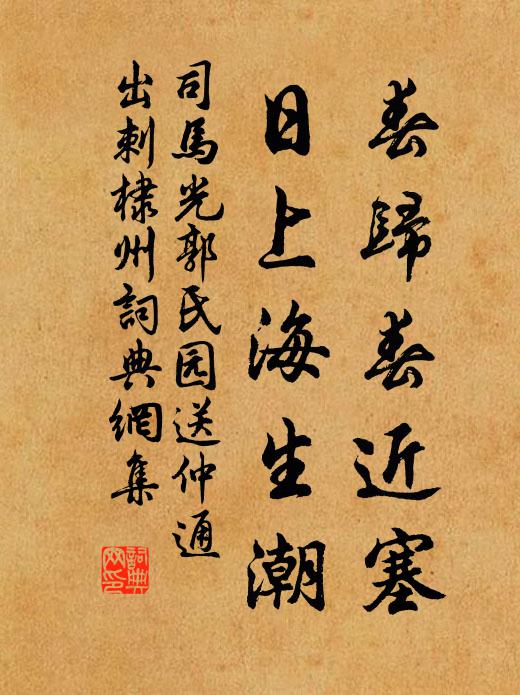 春歸春近塞
日上海生潮
司馬光郭氏园送仲通
出刺棣州詞典網集
詞典
网印